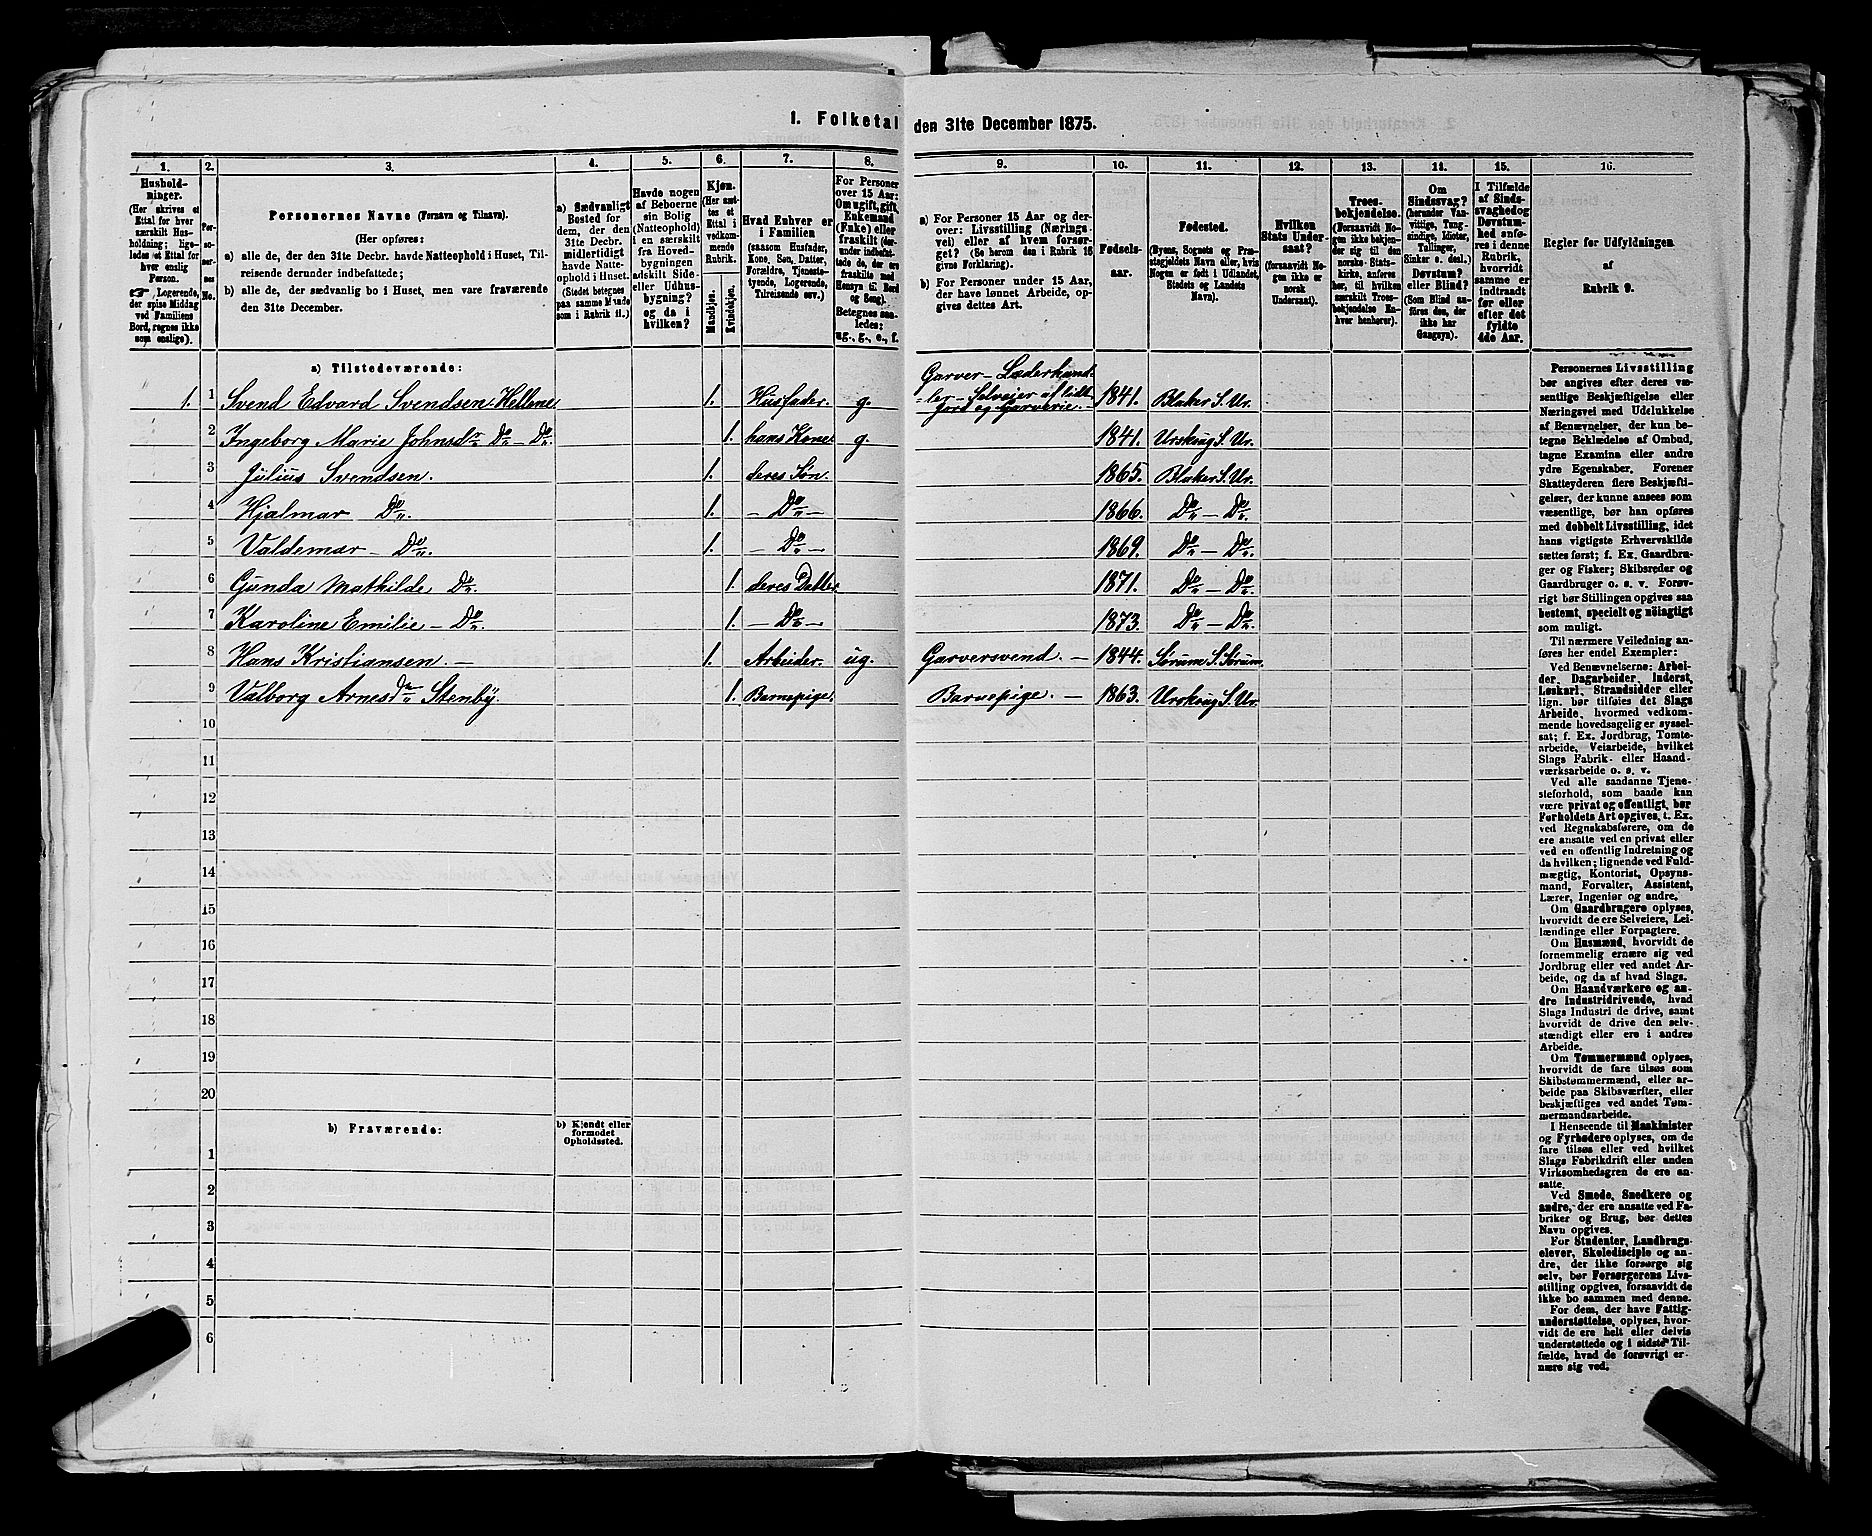 1. Folketal den 31te December 1875.
1. 2. 3. 4. 5. 6. 7. 8. 9. 10. 11. 12. 13. 14. 15. 16.
Hushold-
ninger.
(Her skrives et
Ettal for hver
særskilt Hus-
holdning; lige-
ledes et Ettal for
hver enslig
Person.
☞ Logerende,
der spise Middag
ved Familiens
Bord, regnes ikke
som enslige).
Per-
so-
ner-
nes
No.
Personernes Navne (Fornavn og Tilnavn).
(Her opføres:
a) alle de, der den 31te Decbr. havde Natteophold i Huset, Til-
reisende derunder indbefattede;
b) alle de, der sædvanlig bo i Huset, men vare fraværende
den 31te December.
a) Sædvanligt
Bosted for
dem, der den
31te Decbr.
midlertidigt
havde Natte-
ophold i Huset.
(Stedet betegnes
paa samme Maade
som i Rubrik 11.)
Havde nogen
af Beboerne
sin Bolig
(Natteophold)
i en særskilt
fra Hoved-
bygningen
adskilt Side-
eller Udhus-
bygning?
og da i
hvilken?
Kjøn.
(Her sæt-
tes et
Ettal i
vedkom-
mende
Rubrik.
Mandkjøn.
Kvindekjøn.
Hvad Enhver er
i Familien
(saasom Husfader,
Kone, Søn, Datter,
Forældre, Tjeneste-
tyende, Logerende,
Tilreisende osv.)
For Personer
over 15 Aar:
Om ugift, gift,
Enkemand
(Enke) eller
fraskilt (der-
under indbefat-
tede de, der ere
fraskilte med
Hensyn til Bord
og Seng).
Betegnes saa-
ledes:
ug., g., e., f.
a) For Personer 15 Aar og der-
over: Livsstilling (Nærings-
vei) eller af hvem forsør-
get? (Se herom den i Rubrik 16
givne Forklaring).
b) For Personer under 15 Aar,
der have lønnet Arbeide, op-
gives dettes Art.
Fødsels-
aar.
Fødested.
(Byens, Sognets og Præ-
stegjeldets Navn eller, hvis
Nogen er født i Udlandet,
Stedets og Landets
Navn).
Hvilken
Stats Under-
saat?
(forsaavidt No-
gen ikke er
norsk
Undersaat).
Troes-
bekjendelse.
(Forsaavidt No-
gen ikke bekjen-
der sig til den
norske Stats-
kirke, anføres
her, til hvilken
særskilt Troes-
bekjendelse En-
hver henhører).
Om
Sindssvag?
(herunder Van-
vittige, Tung-
sindige, Idioter,
Tullinger,
Sinker o. desl.)
Døvstum?
eller Blind?
(Som Blind an-
føres den, der
ikke har
Gangsyn).
I Tilfælde
af Sinds-
svaghed og
Døvstum-
hed anfø-
res i denne
Rubrik,
hvorvidt
samme er
indtraadt
før eller
efter det
fyldte
4de Aar.
Regler for Udfyldningen
af
Rubrik 9.
a) Tilstedeværende:
1. 1 Svend Edvard Svendsen Hellene 1. Husfader. g. Garver – Læderhand-
ler – Selveier af lidt
Jord og Garverie. – 1841. Blaker S. Ur.
2 Ingeborg Marie Johnsdr Do – Do 1. hans Kone g. 1841. Urskoug S. Ur.
3 Julius Svendsen. 1. deres Søn. 1865. Blaker S. Ur.
4 Hjalmar Do. 1. – Do – 1866. Do – Do.
5 Valdemar – Do. 1. – Do – 1869. Do – Do.
6 Gunda Mathilde Do. 1. deres Datter. 1871. Do – Do.
7 Karoline Emilie – Do. 1. – Do – 1873. Do – Do.
8 Hans Kristiansen. – 1. Arbeider. ug. Garversvend. – 1844. Sørum S. Sørum.
9 Valborg Arnesdr Stenby. 1. Barnepige. Barnepige. – 1863. Urskoug S. Ur.
10
11
12
13
14
15
16
17
18
19
20
b) Fraværende:
b) Kjendt eller
formodet
Opholdssted.
1
2
3
4
5
6
Personernes Livsstilling
bør angives efter deres væ-
sentlige Beskjæftigelse eller
Næringsvei med Udelukkelse
af Benævnelser, der kun be-
tegne Beklædelse af Ombud,
tagne Examina eller andre
ydre Egenskaber. Forener
Skatteyderen flere Beskjæfti-
gelser, der kunne ansees som
væsentlige, bør han opføres
med dobbelt Livsstilling, idet
hans vigtigste Erhvervskilde
sættes først; f. Ex. Gaardbru-
ger og Fisker; Skibsreder og
Gaardbruger o. s. v. Forøv-
rigt bør Stillingen opgives saa
bestemt, specielt og nøiagtigt
som muligt.
Til nærmere Veiledning an-
føres her endel Exempler:
Ved Benævnelserne: Arbei-
der, Dagarbeider, Inderst,
Løskarl, Strandsidder eller
lign. bør tilføies det Slags
Arbeide, hvormed vedkom-
mende hovedsagelig er syssel-
sat; f. Ex. Jordbrug, Tomte-
arbeide, Veiarbeide, hvilket
Slags Fabrik- eller Haand-
værksarbeide o. s. v.
Ved alle saadanne Tjene-
steforhold, som baade kan
være privat og offentligt, bør
Forholdets Art opgives, t. Ex.
ved Regnskabsførere, om de
ere ansatte ved en privat eller
ved en offentlig Indretning og
da hvilken; lignende ved Fuld-
mægtig, Kontorist, Opsyns-
mand, Forvalter, Assistent,
Lærer, Ingeniør og andre.
Om Gaardbrugere oplyses,
hvorvidt de ere Selveiere, Lei-
lændinge eller Forpagtere.
Om Husmænd, hvorvidt de
fornemmelig ernære sig ved
Jordbrug eller ved andet Ar-
beide, og da af hvad Slags.
Om Haandværkere og an-
dre Industridrivende, hvad
Slags Industri de drive, samt
hvorvidt de drive den selv-
stændigt eller ere i andres
Arbeide.
Om Tømmermænd oplyses,
hvorvidt de fare tilsøs som
Skibstømmermænd, eller ar-
beide paa Skibsværfter, eller
beskjæftiges ved andet Tøm-
mermandsarbeide.
I Henseende til Maskinister
og Fyrbødere oplyses, om de
fare tilsøs eller ved hvilket
Slags Fabrikdrift eller anden
Virksomhedsgren de ere an-
satte.
Ved Smede, Snedkere og
andre, der ere ansatte ved Fa-
briker og Brug, bør dettes
Navn opgives.
For Studenter, Landbrugs-
elever, Skoledisciple og an-
dre, der ikke forsørge sig
selv, bør Forsørgerens Livs-
stilling opgives, forsaavidt de
ikke bo sammen med denne.
For dem, der have Fattig-
understøttelse, oplyses, hvor-
vidt de ere helt eller delvis
understøttede og i sidste Til-
fælde, hvad de forøvrigt er-
nære sig ved.